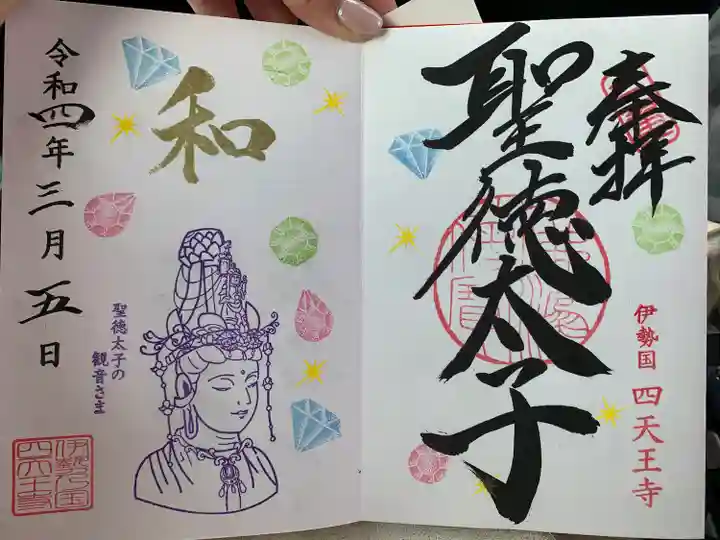 奉拝
聖徳太子
伊勢国 四天王寺
和
聖徳太子の
観音さま
令和四年三月五日
伊勢国
四天王寺